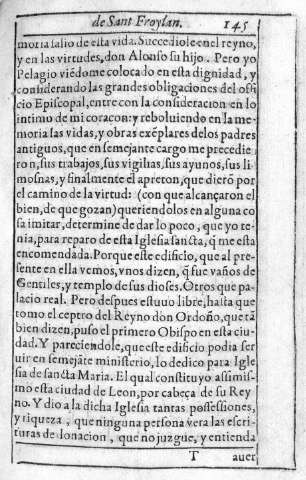 de Sant Froylan. 145
moria salio de esta vida. Succediole en el reyno,
y en las virtudes, don Alonso su hijo. Pero yo
Pelagio viẽdome colocado en esta dignidad, y
considerando las grandes obligaciones del offi
cio Episcopal, entre con la consideracion en lo
intimo de mi coraçon: y reboluiendo en la me-
moria las vidas, y obras exẽplares delos padres
antiguos, que en semejante cargo me precedie
ron, sus trabajos, sus vigilias, sus ayunos, sus li
mosnas, y finalmente el apreton, que dierõ por
el camino de la virtud: (con que alcançaron el
bien, de que gozan) queriendolos en alguna co
sa imitar, determine de dar lo poco, que yo te-
nia, para reparo de esta Iglesia sancta, q̃ me esta
encomendada. Porque este edificio, que al pre-
sente en ella vemos, vnos dizen, q̃ fue vaños de
Gentiles, y templo de sus dioses. Otros que pa-
lacio real. Pero despues estuuo libre, hasta que
tomo el ceptro del Reyno don Ordoño, que tã
bien dizen, puso el primero Obispo en esta ciu-
dad. Y pareciendole, que este edificio podia ser
uir en semejãte ministerio, lo dedico para Igle
sia de sancta Maria. El qual constituyo assimis-
mo esta ciudad de Leon, por cabeça de su Rey
no. Y dio a la dicha Iglesia tantas possessiones,
y riqueza, que ninguna persona vera las escri-
turas de donacion, que no juzgue, y entienda
T auer